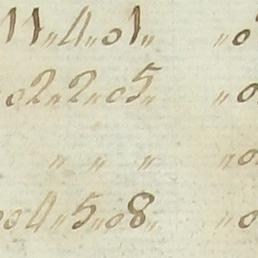 11„4„01„ „0
02„2„05„ „0
„ „ „ „0
04„5„08„ „0